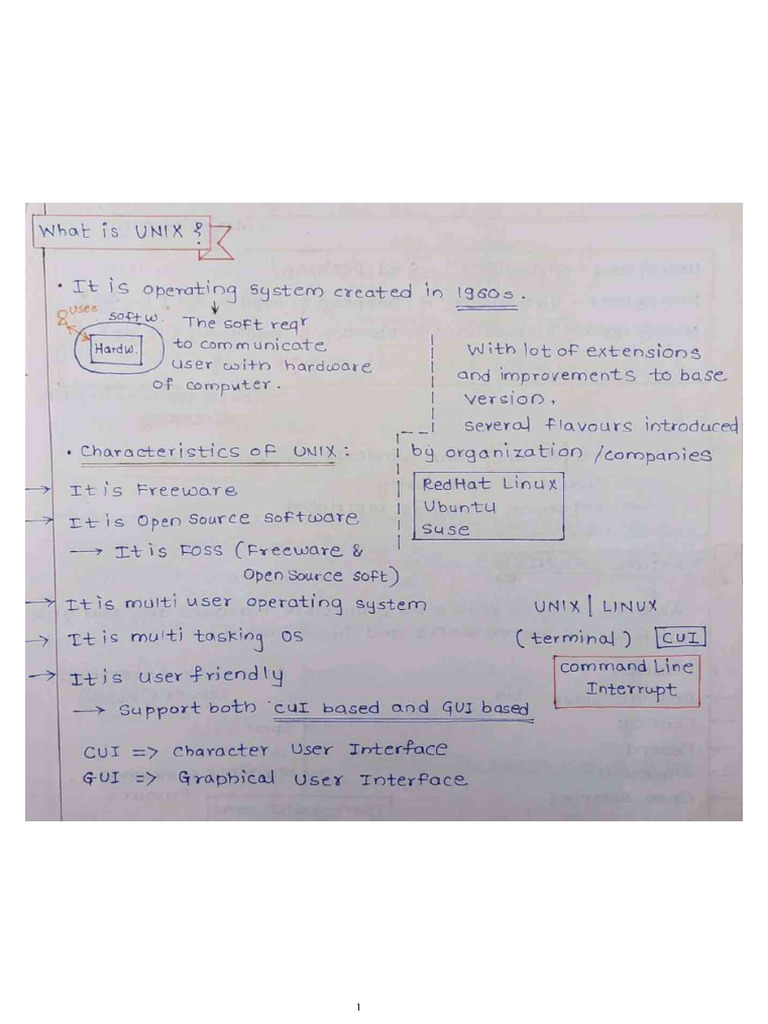 What is UNIX ?
• It is operating system created in 1960s.
User
softw.
Hardw.
The soft reqr
to communicate
user with hardware
of computer.
With lot of extensions
and improvements to base
version,
several flavours introduced
by organization /companies
RedHat Linux
Ubuntu
Suse
• Characteristics of UNIX :
→ It is Freeware
→ It is Open Source Software
→ It is FOSS (Freeware &
Open Source Soft)
→ It is multi user operating system
→ It is multi tasking OS
→ It is user friendly
→ Support both CUI based and GUI based
CUI => Character User Interface
GUI => Graphical User Interface
UNIX | LINUX
(terminal) CUI
Command Line
Interrupt
1